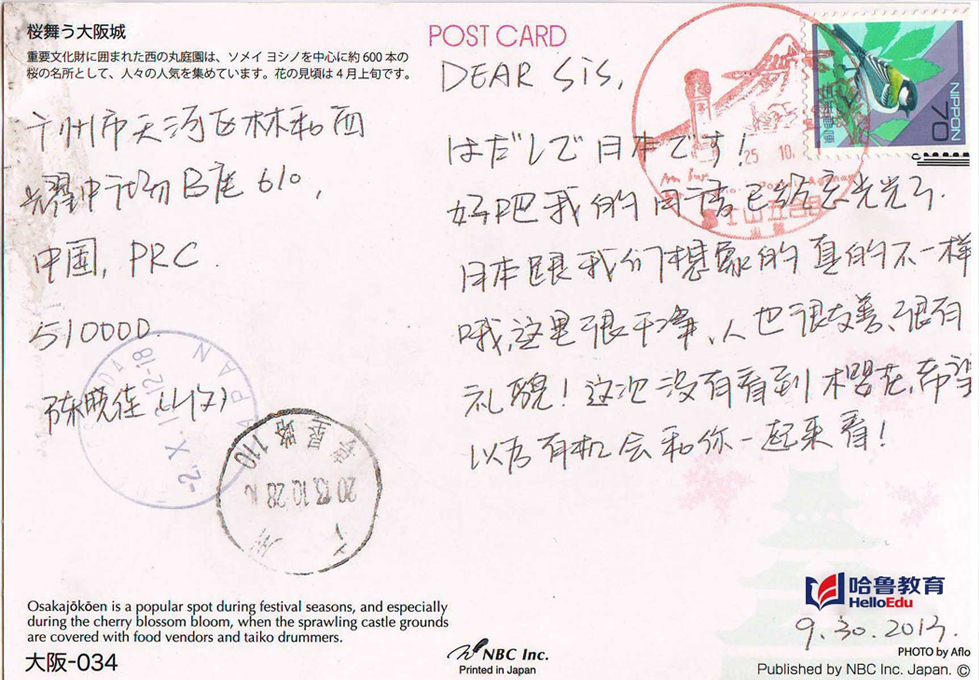 桜舞う大阪城
重要文化財に囲まれた西の丸庭園は、ソメイヨシノを中心に約600本の
桜の名所として、人々の人気を集めています。花の見頃は4月上旬です。
POST CARD
NIPPON
70
广州市天河区林和西
耀中广场B座610,
中国, PRC.
510000
陈晓佳 (收)
DEAR SIS,
はだしで日本です!
好吧我的日语已经忘光光了.
日本跟我们想象的真的不一样
哦,这里很干净、人也很友善、很有
礼貌!这次没有看到樱花,希望
以后有机会和你一起来看!
9.30.2013.
25. 10.
富士山五合目
-2. X. 12-18
JAPAN
2013.10.28
广州
路 110
哈鲁教育
HelloEdu
Osakajōkōen is a popular spot during festival seasons, and especially
during the cherry blossom bloom, when the sprawling castle grounds
are covered with food vendors and taiko drummers.
大阪-034
NBC Inc.
Printed in Japan
PHOTO by Aflo
Published by NBC Inc. Japan. ©